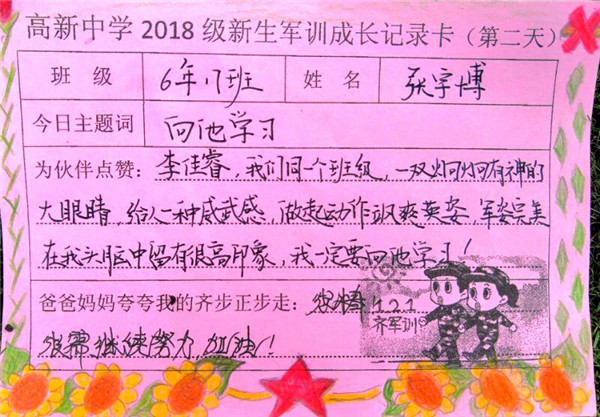 高新中学 2018 级新生军训成长记录卡（第二天）
班 级 6年17班 姓 名 张宇博
今日主题词 向他学习
为伙伴点赞：李佳睿，我们同一个班级，一双炯炯有神的
大眼睛，给人一种威武感，做起动作飒爽英姿，军姿完美
在我头脑中留有很高印象，我一定要向他学习！
爸爸妈妈夸夸我的齐步正步走：很棒
1 2 1
齐军训
继续努力，加油！